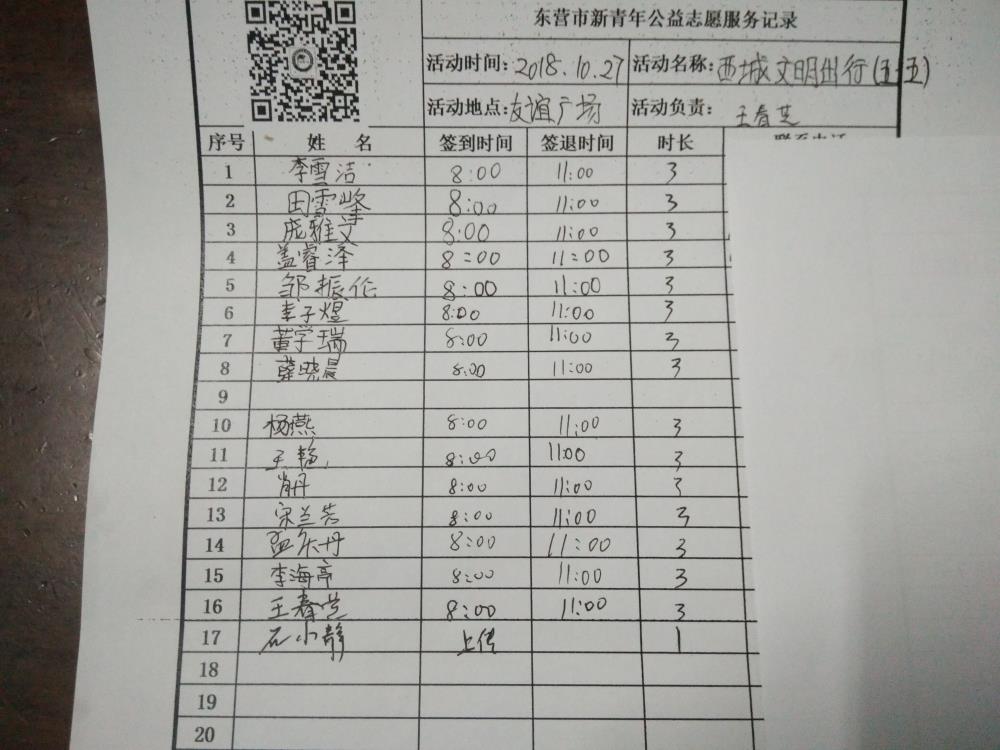 东营市新青年公益志愿服务记录
活动时间: 2018.10.27 活动名称: 西城文明出行(五十五)
活动地点: 友谊广场 活动负责: 王春芝
序号 姓名 签到时间 签退时间 时长
1 李雪洁 8:00 11:00 3
2 田雪峰 8:00 11:00 3
3 庞雅文 8:00 11:00 3
4 盖睿泽 8:00 11:00 3
5 邹振伦 8:00 11:00 3
6 李子煜 8:00 11:00 3
7 董学瑞 8:00 11:00 3
8 薛晓晨 8:00 11:00 3
9
10 杨燕 8:00 11:00 3
11 王 8:00 11:00 3
12 肖丹 8:00 11:00 3
13 宋兰芳 8:00 11:00 3
14 孟庆丹 8:00 11:00 3
15 李海亭 8:00 11:00 3
16 王春芝 8:00 11:00 3
17 石小静 上传 1
18
19
20